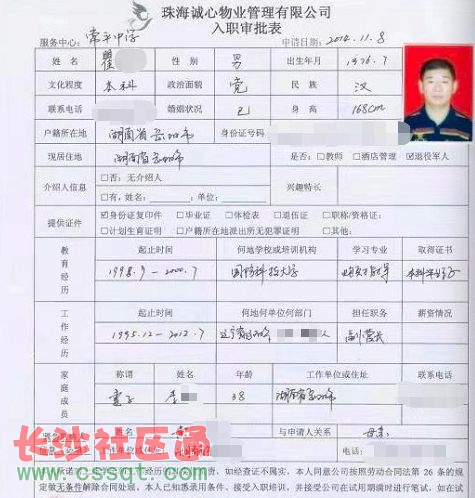 珠海诚心物业管理有限公司
入职审批表
服务中心: 常平中学 申请日期: 2014.11.8
姓名 瞿 性别 男 出生年月 1976.7
文化程度 本科 政治面貌 党 民族 汉
联系电话 婚姻状况 已 身高 168cm
户籍所在地 湖南省岳阳市 身份证号码
现居住地 湖南省岳阳市 是否: □教师 □酒店管理 ☑退役军人
介绍人信息 □否: 无介绍人 □有, 姓名: ; 单位: 兴趣特长
提供证件 ☑身份证复印件 □毕业证 □体检表 □退伍证 □职称/资格证:
□计划生育证明 □户籍所在地派出所无犯罪证明 □其他:
教育经历 起止时间 何地学校或培训机构 学习专业 取得证书
1998.9 - 2000.7 国防科技大学 本科毕业
工作经历 起止时间 何地何单位何部门 担任职务 薪资情况
1995.12 - 2012.7 辽宁省 副营长
家庭成员 称谓 姓名 年龄 工作单位或住址 联系电话
妻子 李 38 湖南省岳阳市
与申请人关系 母亲
长沙社区通
www.cssqt.com
如经查证不属实, 本人同意公司按照劳动合同法第 26 条的
规定无条件解除合同处理. 本人已知悉录用条件、接受入职培训, 并接受公司在试用期随时进行笔试, 如在试